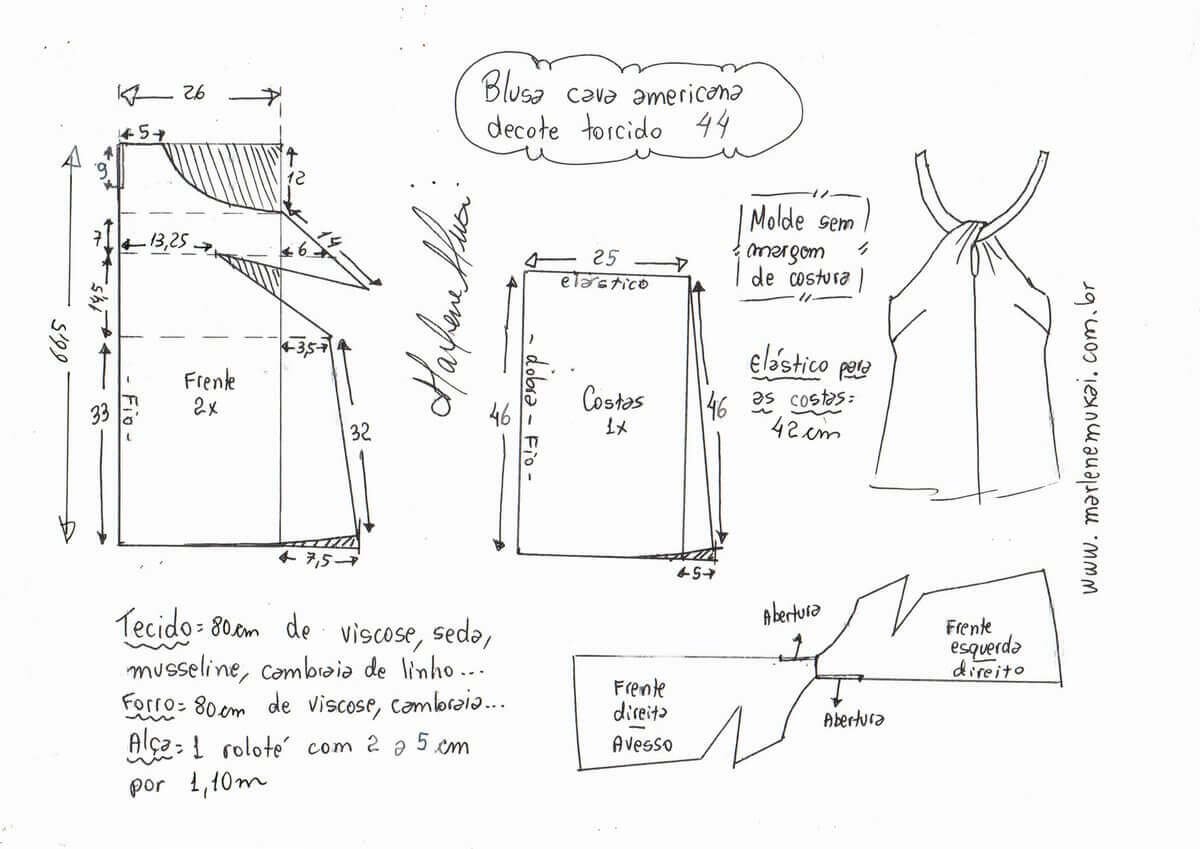 Blusa cava americana
decote torcido 44
26
5
9
12
7
13,25
6
15
14,5
66,5
3,5
Frente
2x
33
- Fio -
32
7,5
Marlene Mukai
25
elástico
- dobra - Fio -
46
Costas
1x
46
5
Molde sem
margem
de costura
Elástico para
as costas=
42 cm
www.marlenemukai.com.br
Tecido= 80cm de viscose, seda,
musseline, cambraia de linho...
Forro= 80cm de viscose, cambraia...
Alça= 1 roloté com 2 a 5 cm
por 1,10m
Abertura
Frente
esquerda
direito
Frente
direita
Avesso
Abertura